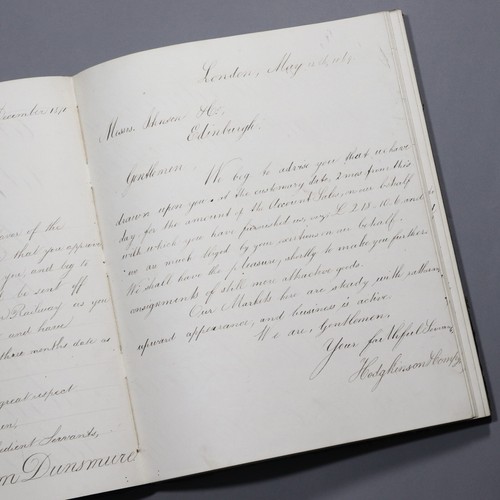 December 18
ver of the
that you appear
you, and beg to
be sent off
Railway as you
and have
those months date as
great respect
en,
edient Servants,
Dunsmure
London, May
Messrs. & Co.
Edinburgh.
Gentlemen
We beg to advise you that we have
drawn upon you, at the customary date, 2 mos from this
day for the amount of the Account Sales, on our behalf
with which you have furnished us, say £ 218.10.6 and
we are much obliged by your exertions in our behalf.
We shall have the pleasure, shortly to make you further
consignments of still more attractive goods.
Our Markets here are steady with rather
upward appearance, and business is active.
We are, Gentlemen,
Your faithful Servants
Hodgkinson & Compy